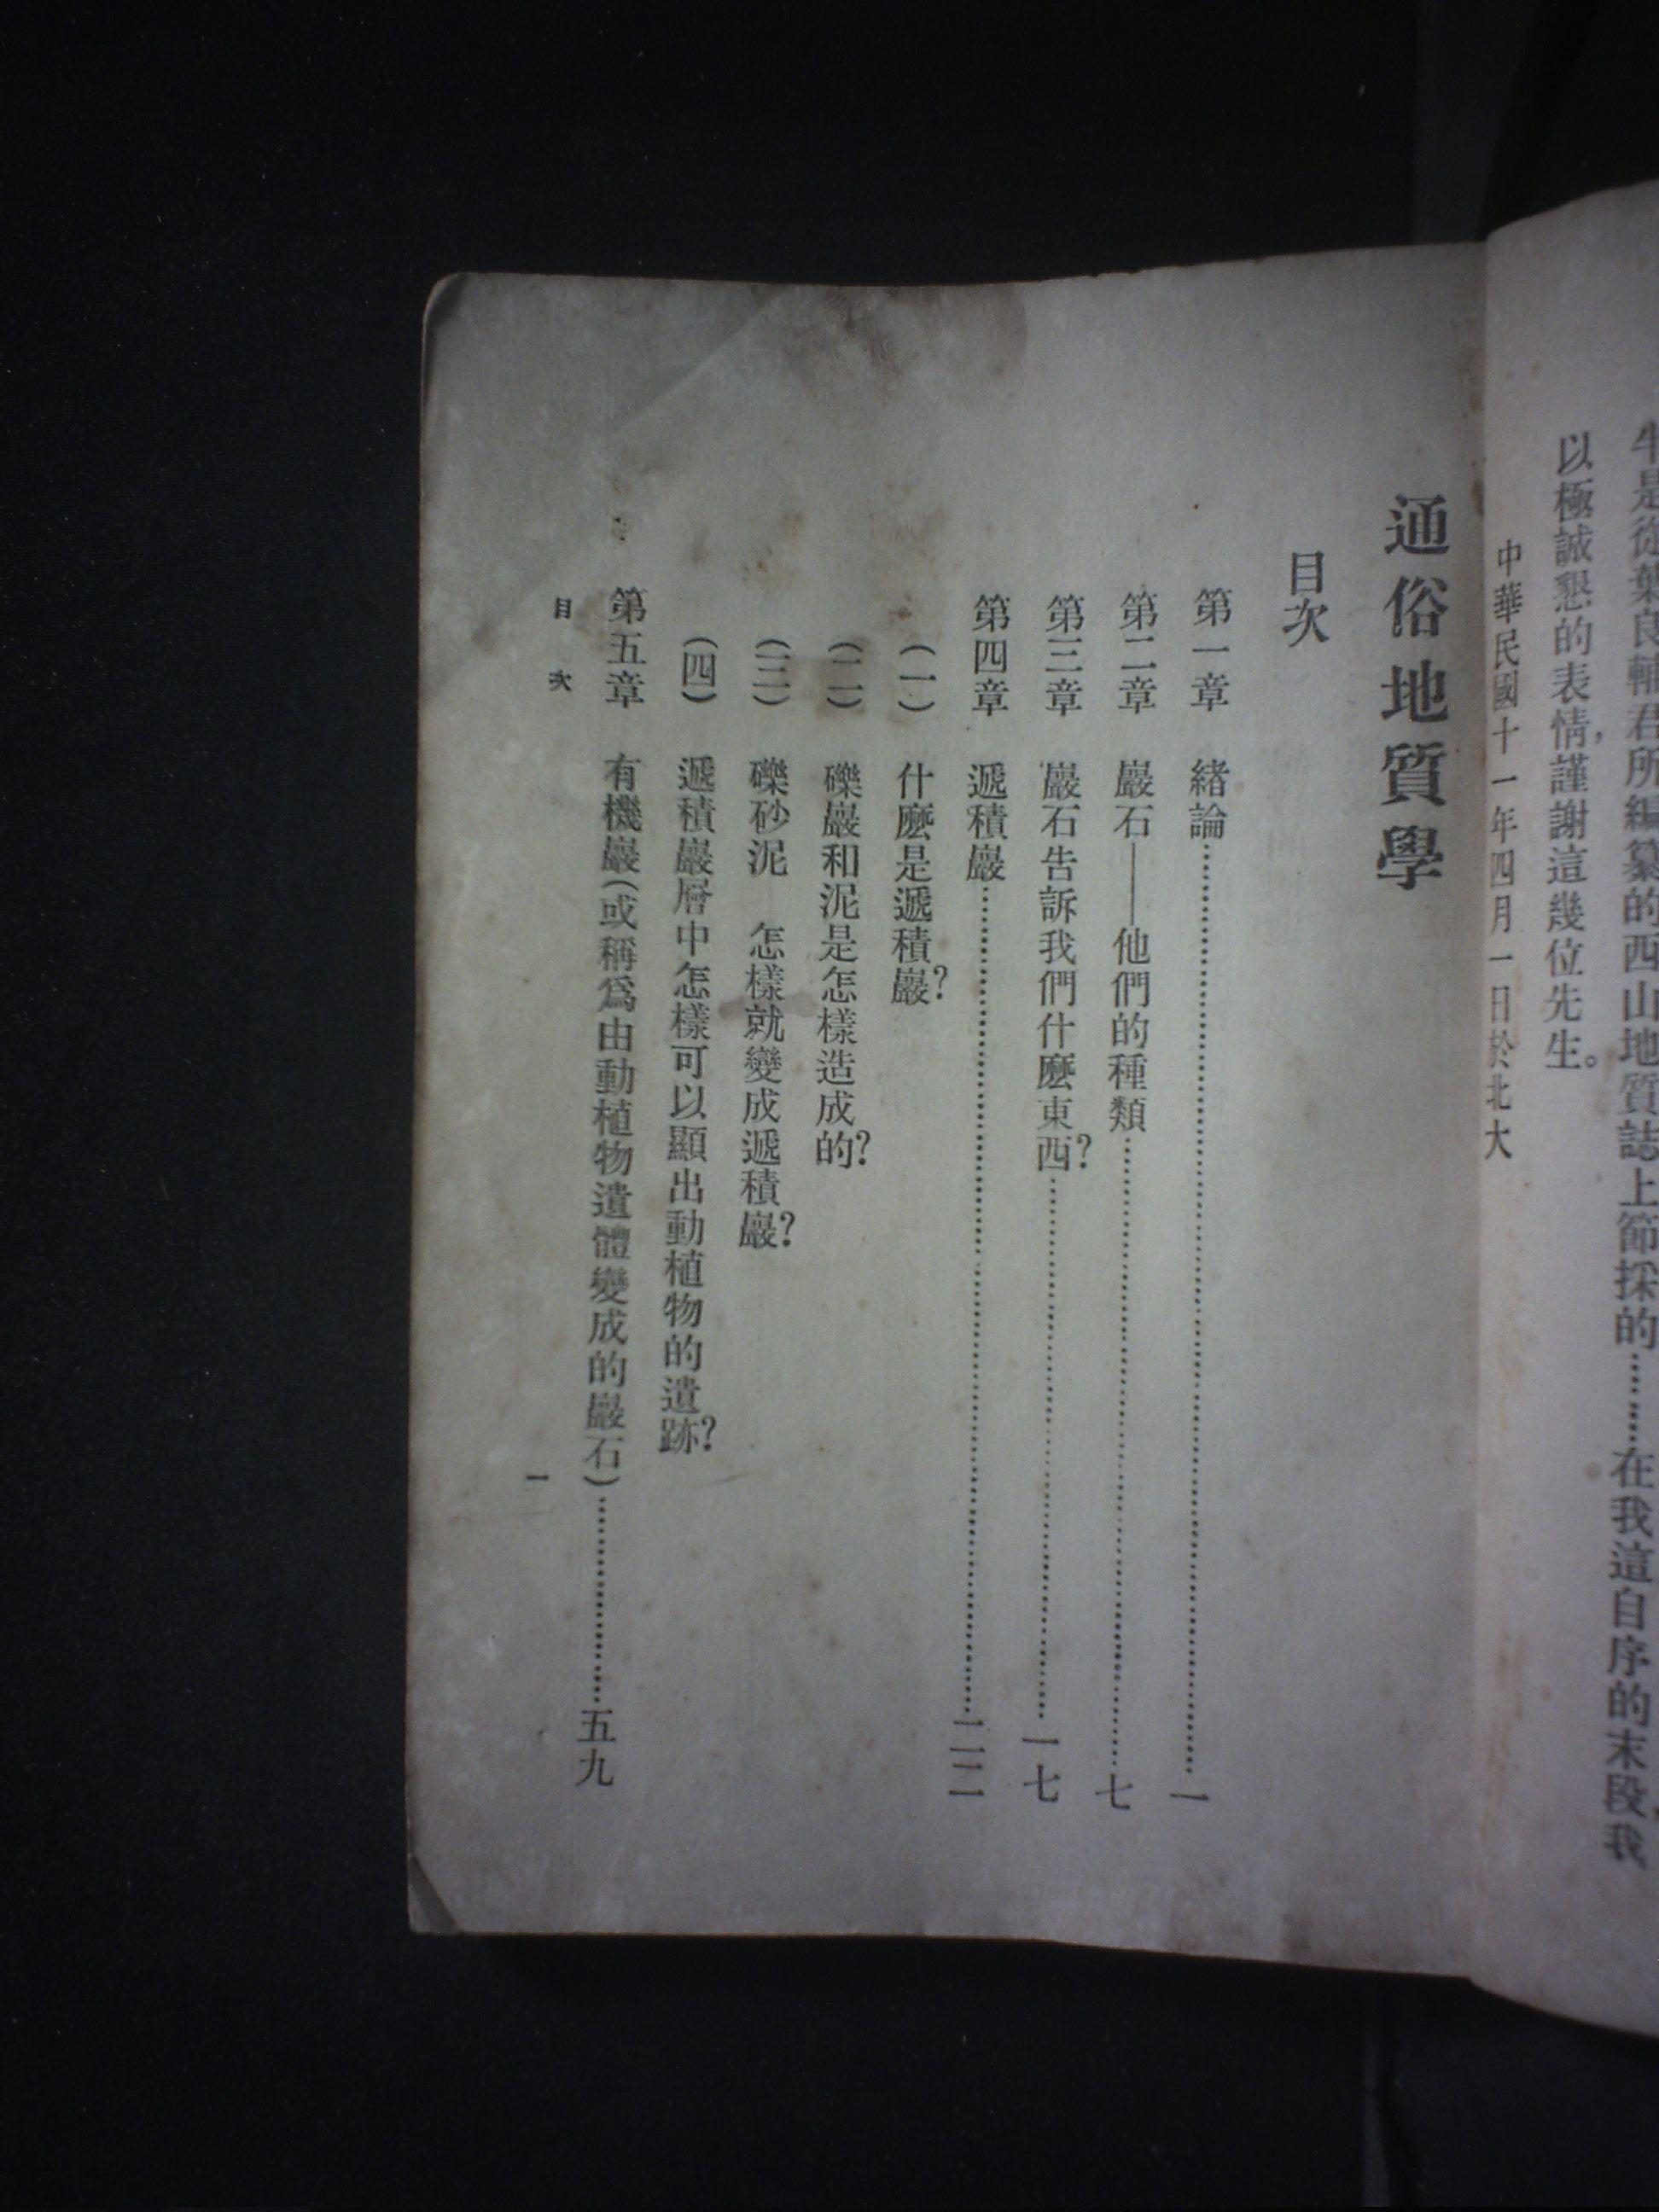 半是從葉良輔君所編纂的西山地質誌上節採的………在我這自序的末段我
以極誠懇的表情，謹謝這幾位先生。
中華民國十一年四月一日於北大
通俗地質學
目次
第一章　緒論………一
第二章　巖石——他們的種類………七
第三章　巖石告訴我們什麼東西？………一七
第四章　遞積巖………二二
（一）　什麼是遞積巖？
（二）　礫巖和泥是怎樣造成的？
（三）　礫砂泥　怎樣就變成遞積巖？
（四）　遞積巖層中怎樣可以顯出動植物的遺跡？
第五章　有機巖（或稱爲由動植物遺體變成的巖石）………五九
目次
一